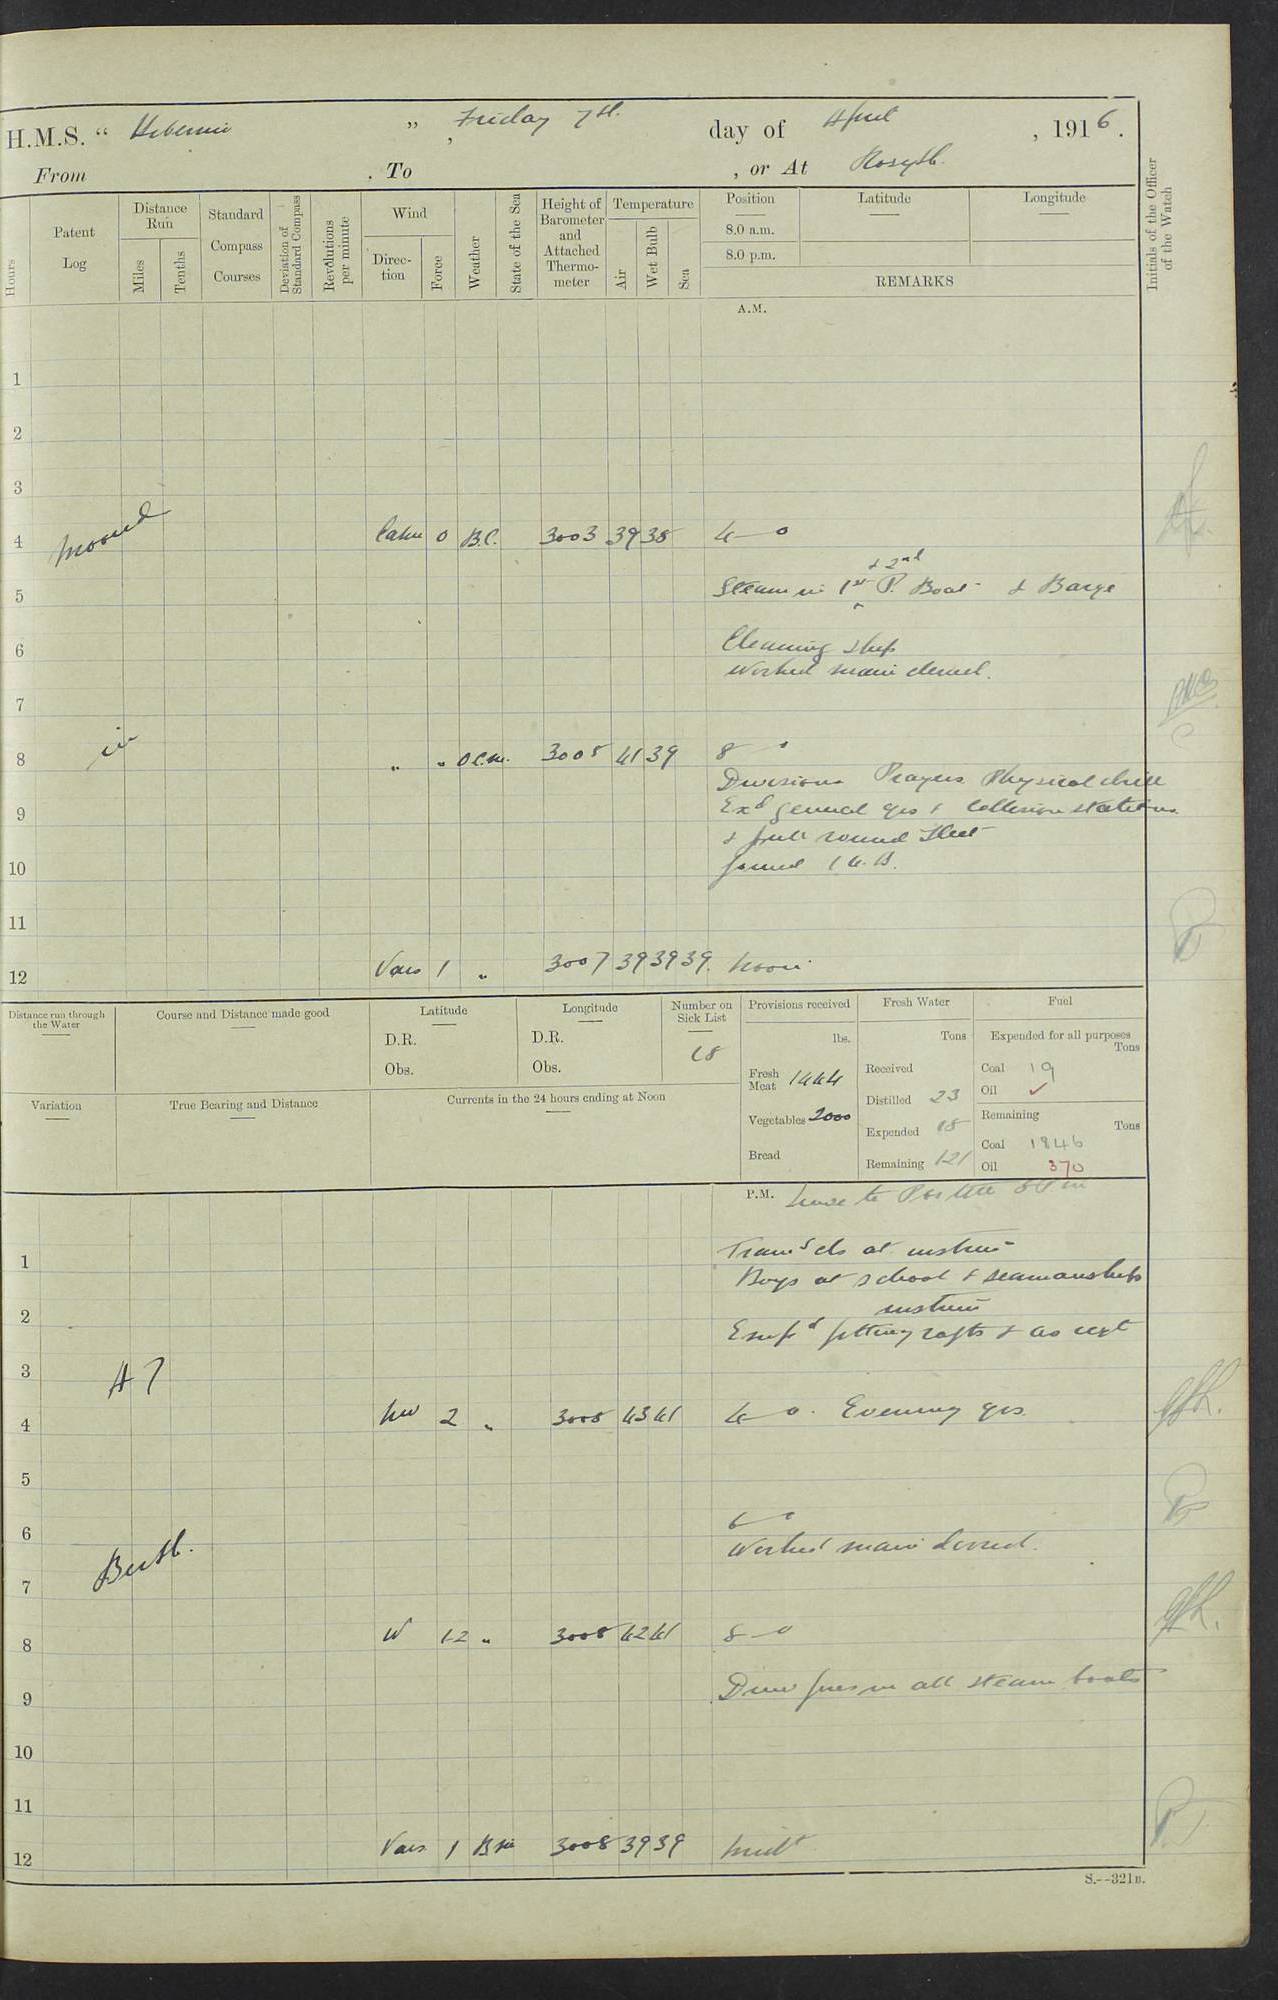 H.M.S. "Hibernia", Friday 7th. day of April, 1916.
From . To , or At Rosyth.
Hours
Patent Log
Distance Run
Miles
Tenths
Standard Compass Courses
Deviation of Standard Compass
Revolutions per minute
Wind
Direction
Force
Weather
State of the Sea
Height of Barometer and Attached Thermometer
Temperature
Air
Wet Bulb
Sea
Position
8.0 a.m.
8.0 p.m.
Latitude
Longitude
REMARKS
Initials of the Officer of the Watch
A.M.
1
2
3
4 Moored Calm 0 B.C. 3003 39 38 4—0
& 2nd
5 Steam in 1st P. Boat & Barge
6 Cleaning ship
Worked main derrick.
7
8 in " " O.C.M. 3005 41 39 8—0
Divisions Prayers Physical drill
9 Exd general qrs & Collision stations
& pull round Fleet
10
11
12 Vars 1 " 3007 39 39 39. Noon
Distance run through the Water
Course and Distance made good
Latitude
D.R.
Obs.
Longitude
D.R.
Obs.
Number on Sick List
18
Variation
True Bearing and Distance
Currents in the 24 hours ending at Noon
Provisions received
lbs.
Fresh Meat 1444
Vegetables 2000
Bread
Fresh Water
Tons
Received
Distilled 23
Expended 18
Remaining 121
Fuel
Expended for all purposes
Tons
Coal 19
Oil ✓
Remaining
Tons
Coal 1846
Oil 370
P.M. Leave to
1 at instrn
Boys at school & seamanship
2 instrn
Empd fitting rafts & as reqt
3 A 7
4 NW 2 " 3008 43 41 4—0. Evening qrs.
5
6 6—0
Berth. Worked main derrick.
7
8 W 1-2 " 3008 42 41 8—0
9 Drew fires in all steam boats
10
11
12 Vars 1 3008 39 39 Midt
S.--321B.